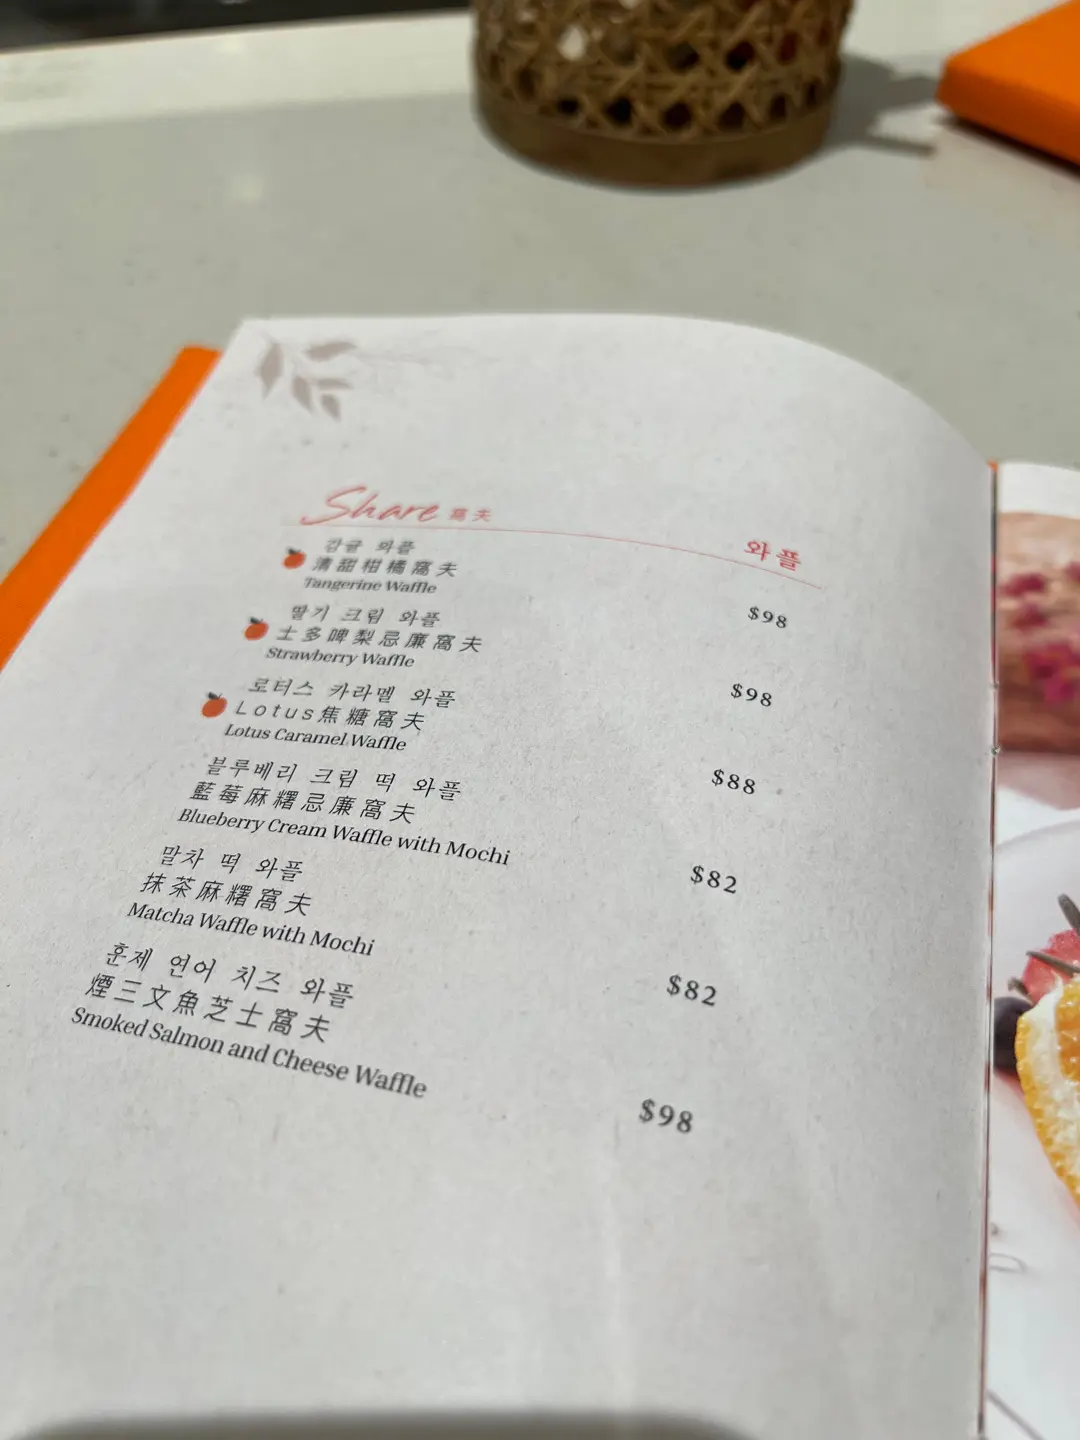 Share 窩夫
와플
감귤 와플
清甜柑橘窩夫
Tangerine Waffle
$98
딸기 크림 와플
士多啤梨忌廉窩夫
Strawberry Waffle
$98
로터스 카라멜 와플
Lotus焦糖窩夫
Lotus Caramel Waffle
$88
블루베리 크림 떡 와플
藍莓麻糬忌廉窩夫
Blueberry Cream Waffle with Mochi
$82
말차 떡 와플
抹茶麻糬窩夫
Matcha Waffle with Mochi
$82
훈제 연어 치즈 와플
煙三文魚芝士窩夫
Smoked Salmon and Cheese Waffle
$98